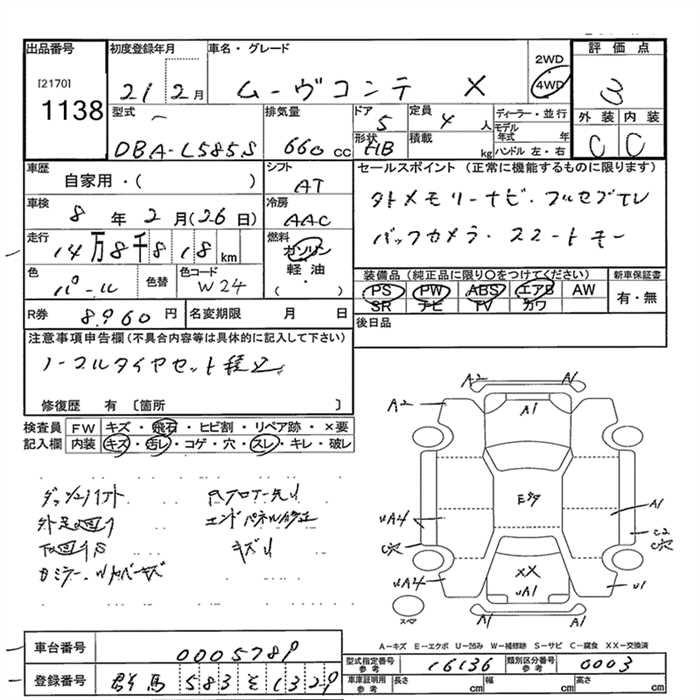 出品番号
[2170]
1138
初度登録年月
21 2月
車名・グレード
ムーヴコンテ X
2WD
4WD
評価点
3
外装 内装
C C
型式
DBA-L585S
排気量
660cc
ドア
5
形状
HB
定員
4人
積載
kg
ディーラー・並行
モデル年式 年
ハンドル 左・右
車歴
自家用・( )
シフト
AT
車検
8年2月(26日)
冷房
AAC
走行
14万8千818km
燃料
ガソリン
軽油
・( )
色
パール
色替
色コード
W24
R券
8960円
名変期限 月 日
セールスポイント (正常に機能するものに限ります)
メモリーナビ・フルセグTV
バックカメラ・スマートキー
装備品 (純正品に限り○をつけてください)
PS PW ABS エアB AW
SR ナビ TV カワ
新車保証書
有・無
後日品
注意事項申告欄 (不具合内容等は具体的に記入して下さい)
ノーマルタイヤセット積込
修復歴 有 〔箇所 〕
検査員記入欄
FW キズ・飛石・ヒビ割・リペア跡・×要
内装 キズ・汚レ・コゲ・穴・スレ・キレ・破レ
エンドパネル修正
キズU
A2 A1
A2 A1
uA4
uA4
A1
C2
C穴
U1
XX
uA1
A1 A1
スペア
A-キズ E-エクボ U-凹み W-補修跡 S-サビ C-腐食 XX-交換済
車台番号
0005789
登録番号
群馬 583 そ 1329
型式指定番号
参考
16136
類別区分番号
参考
0003
車庫証明用
参考
長さ cm
幅 cm
高さ cm